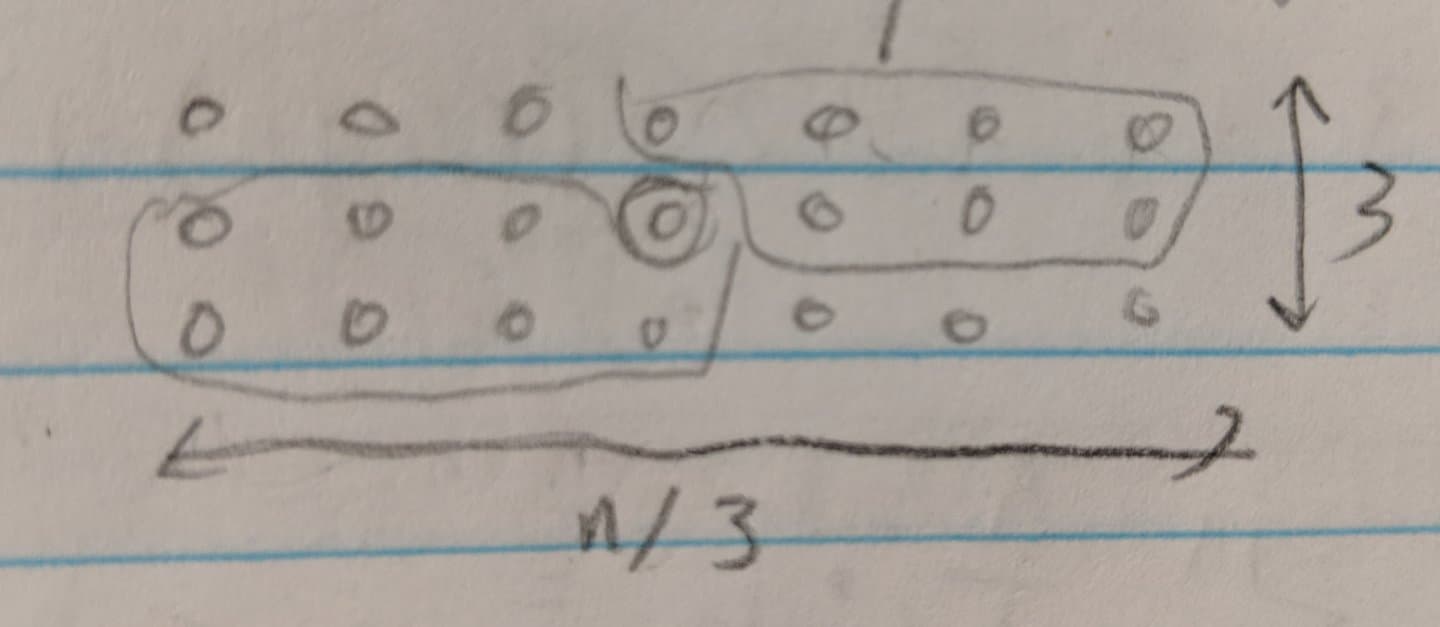 3
n/3